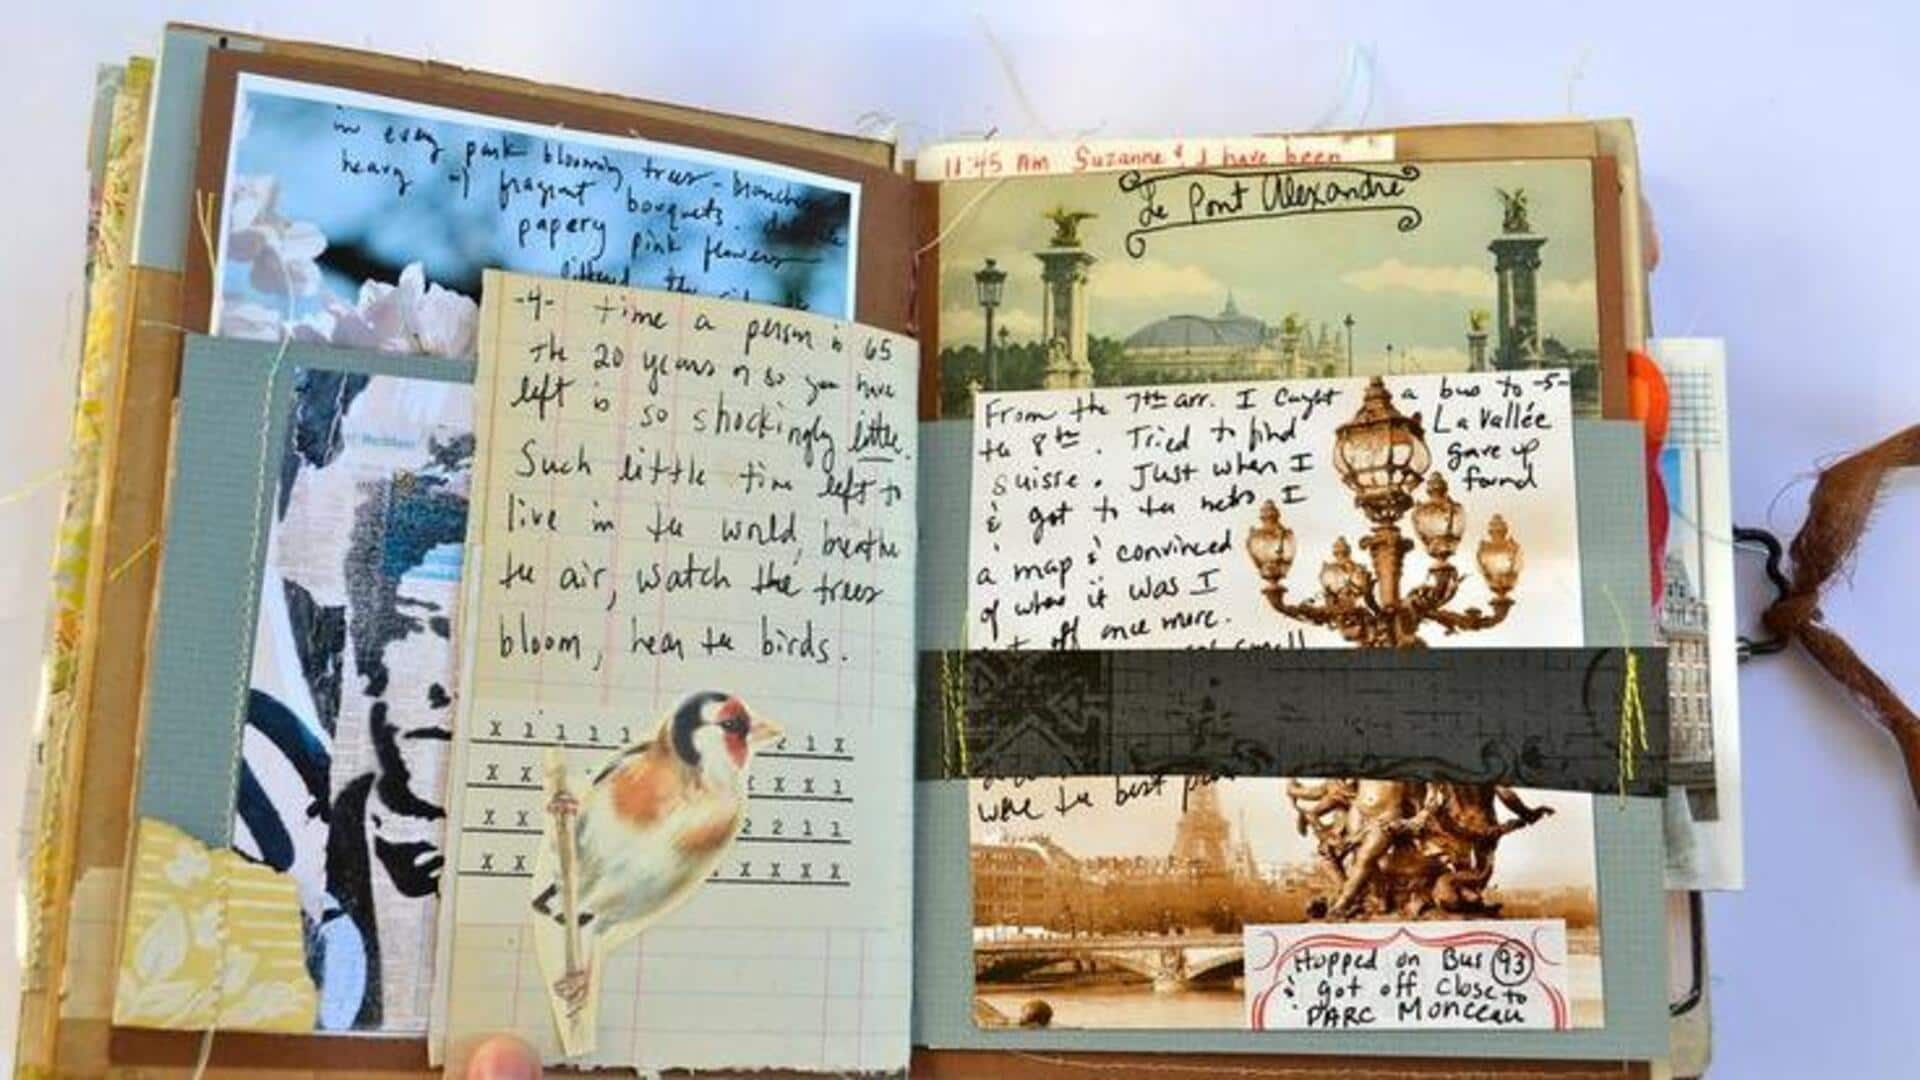 in every park blooming trees - branches
heavy w/ fragrant bouquets.
papery pink flowers
littered the
-4- time a person is 65
the 20 years or so you have
left is so shockingly little.
Such little time left to
live in the world, breathe
the air, watch the trees
bloom, hear the birds.
X 1 1 1 1 2 1 X
X X X X X 1
X X 2 2 1 1
X X . X X X X
11:45 AM Suzanne & I have been
Le Pont Alexandre
From the 7th arr. I caught a bus to -5-
the 8th. Tried to find La Vallée
Suisse. Just when I gave up
& got to the metro I found
a map & convinced
of where it was I
got off once more.
small
were the best
Hopped on Bus 93
& got off close to
PARC Monceau